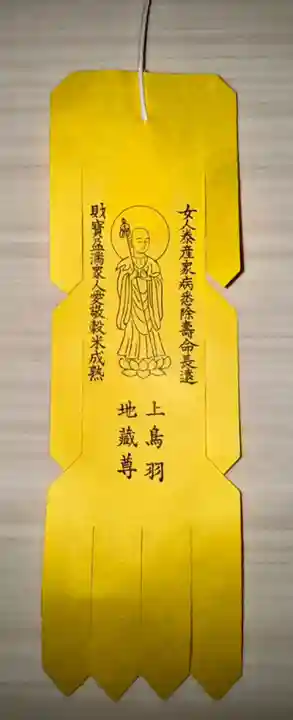 女人泰産衆病悉除壽命長遠
財寶盈満衆人愛敬穀米成熟
上鳥羽
地藏尊